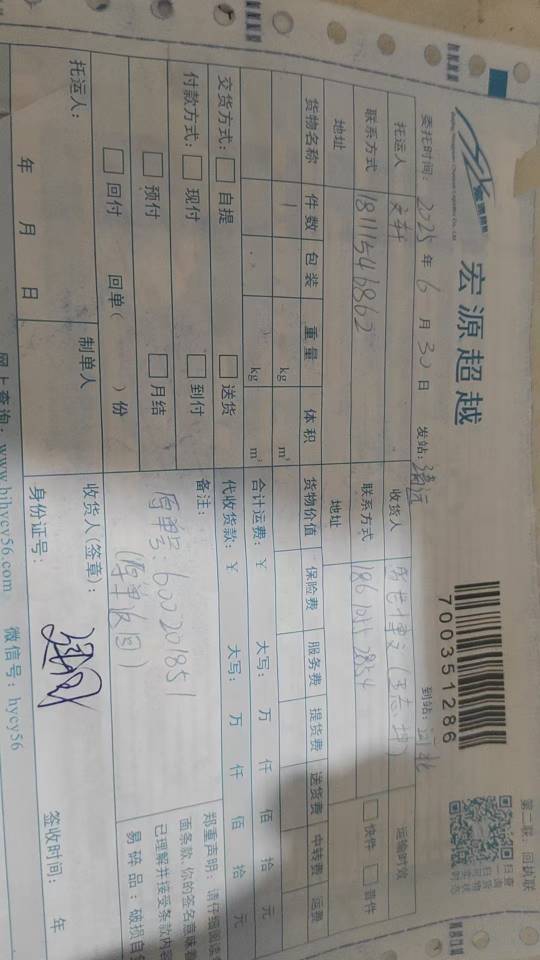 宏源超越
7000351286
第二联：回执联
委托时间：2025年6月30日 发站：清远 到站：河北
托运人 文轩 收货人 运输时效
联系方式 18111546862 联系方式 快件 普件
地址 地址
货物名称 件数 包装 重量 体积 货物价值 保险费 服务费 提货费 送货费 中转费 运费
1 kg m³
kg m³ 合计运费：￥ 大写： 万 仟 佰 拾 元
交货方式： 自提 送货 代收货款：￥ 大写： 万 仟 佰 拾 元
付款方式： 现付 到付 备注：
预付 月结 原单号：600201851
回付 回单( )份 (原单返回)
郑重声明：请仔细阅读
面条款,你的签名意味着
已理解并接受条款内容
易碎品：破损自
托运人： 制单人 收货人(签章)：
年 月 日 身份证号： 签收时间： 年
网上查询：www.bjhycy56.com 微信号：hycy56